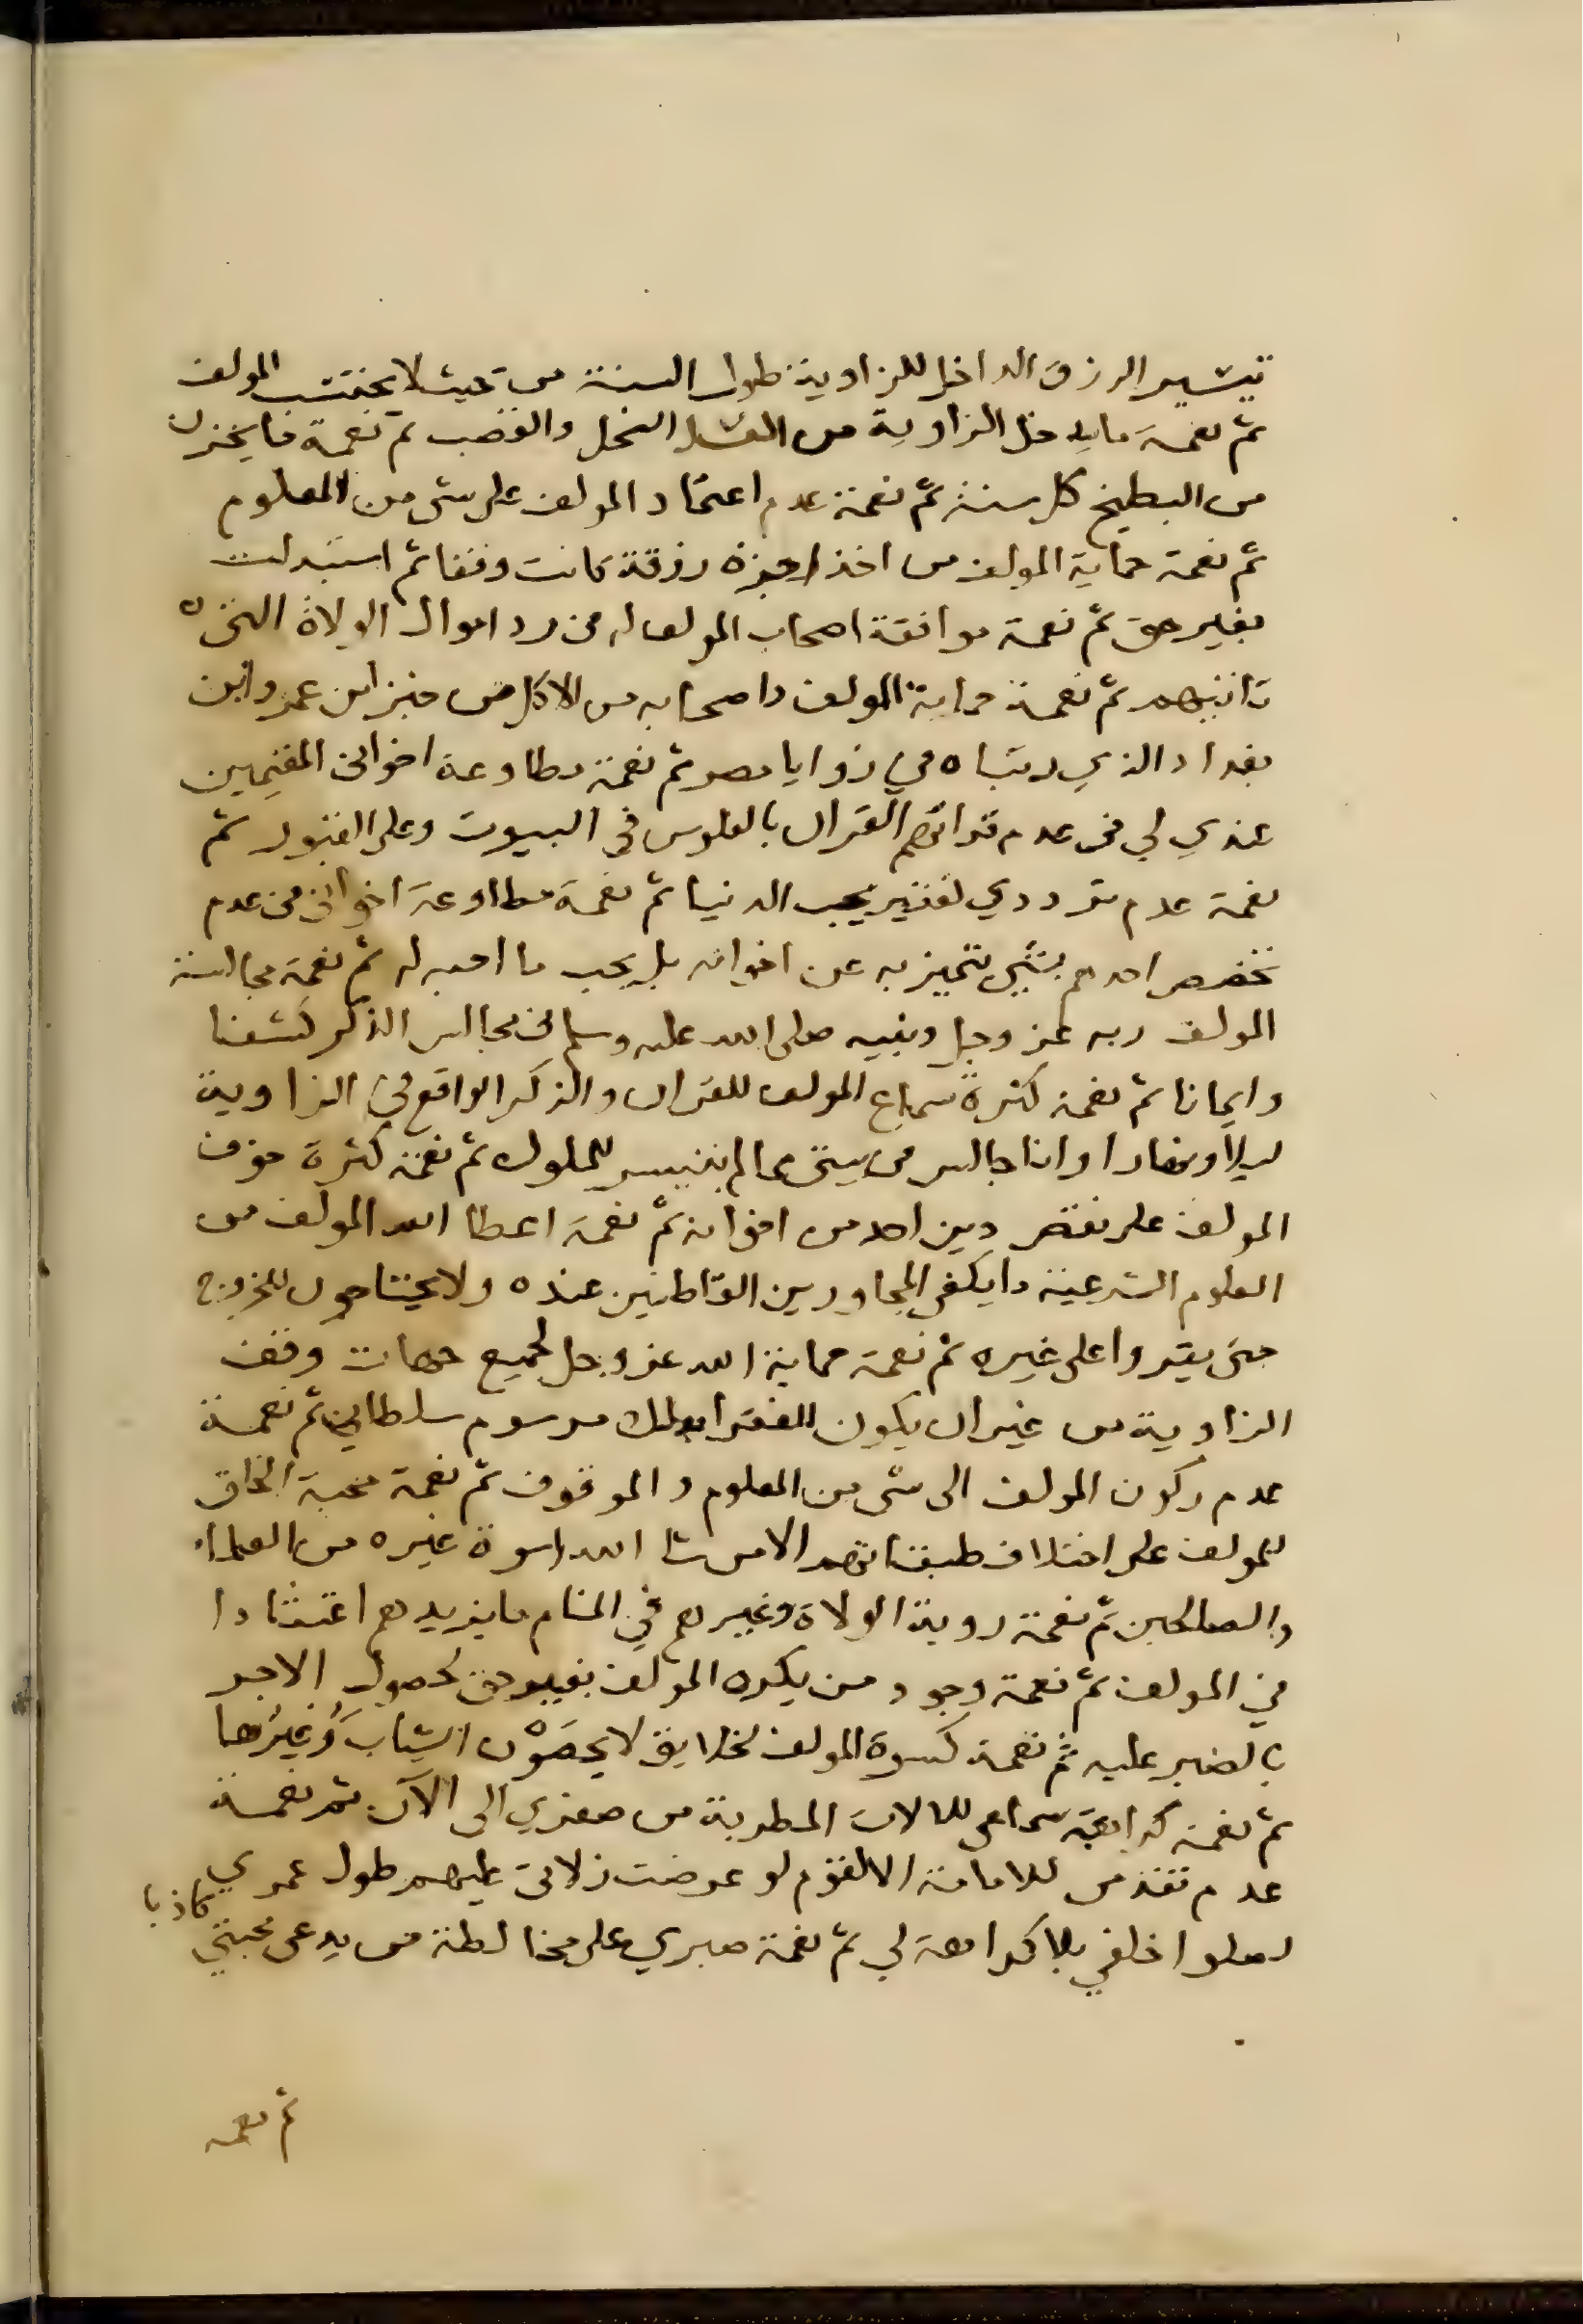 تيسير الرزق الداخل للزاوية طول السنة من حيث لا يحتسب المولف
ثم نعمة ما يدخل الزاوية من العسل النحل والقصب ثم نعمة ما يخزن
من البطيخ كل سنة ثم نعمة عدم اعتماد المولف على شى من المعلوم
ثم نعمة حماية المولف من اخذ اجرة رزقة كانت وقفا ثم استبدلت
بغير حق ثم نعمة موافقة اصحاب المولف له فى رد اموال الولاة التى
تاتيهم ثم نعمة حماية المولف واصحابه من الاكل من خبز ابن عمر وابن
بغداد الذي رتباه في زوايا مصر ثم نعمة مطاوعة اخوانى المقيمين
عندي لي فى عدم قراتهم القران بالفلوس في البيوت وعلى القبور ثم
نعمة عدم ترددي لفقير يحب الدنيا ثم نعمة مطاوعة اخوانى فى عدم
تخصص احدهم بشى يتميز به عن اخوانه بل يحب ما احبه له ثم نعمة مجالسة
المولف ربه عز وجل ونبيه صلى الله عليه وسلم فى مجالس الذكر كشفا
وايمانا ثم نعمة كثرة سماع المولف للقران والذكر الواقع في الزاوية
ليلا ونهارا وانا جالس فى بيتى مما لم يتيسر للملوك ثم نعمة كثرة خوف
المولف على نقص دين احد من اخوانه ثم نعمة اعطا الله المولف من
العلوم الشرعية ما يكفى المجاورين القاطنين عنده ولا يحتاجون للخروج
حتى يقروا على غيره ثم نعمة حماية الله عز وجل لجميع جهات وقف
الزاوية من غير ان يكون للفقرا بذلك مرسوم سلطاني ثم نعمة
عدم ركون المولف الى شى من المعلوم والموقوف ثم نعمة محبة الخلق
للمولف على اختلاف طبقاتهم الا من شا الله اسوة غيره من العلماء
والصالحين ثم نعمة روية الولاة وغيرهم في المنام ما يزيدهم اعتقادا
في المولف ثم نعمة وجود من يكره المولف بغير حق لحصول الاجر
بالصبر عليه ثم نعمة كسوة المولف لخلايق لا يحصون الثياب وغيرها
ثم نعمة كراهة سماعى للالات المطربة من صغري الى الآن ثم نعمة
عدم تقدمى للامامة الا لقوم لو عرضت زلاتى عليهم طول عمري
لصلوا خلفي بلا كراهة لي ثم نعمة صبري على مخالطة من يدعى محبتي كاذبا
ثم نعمة